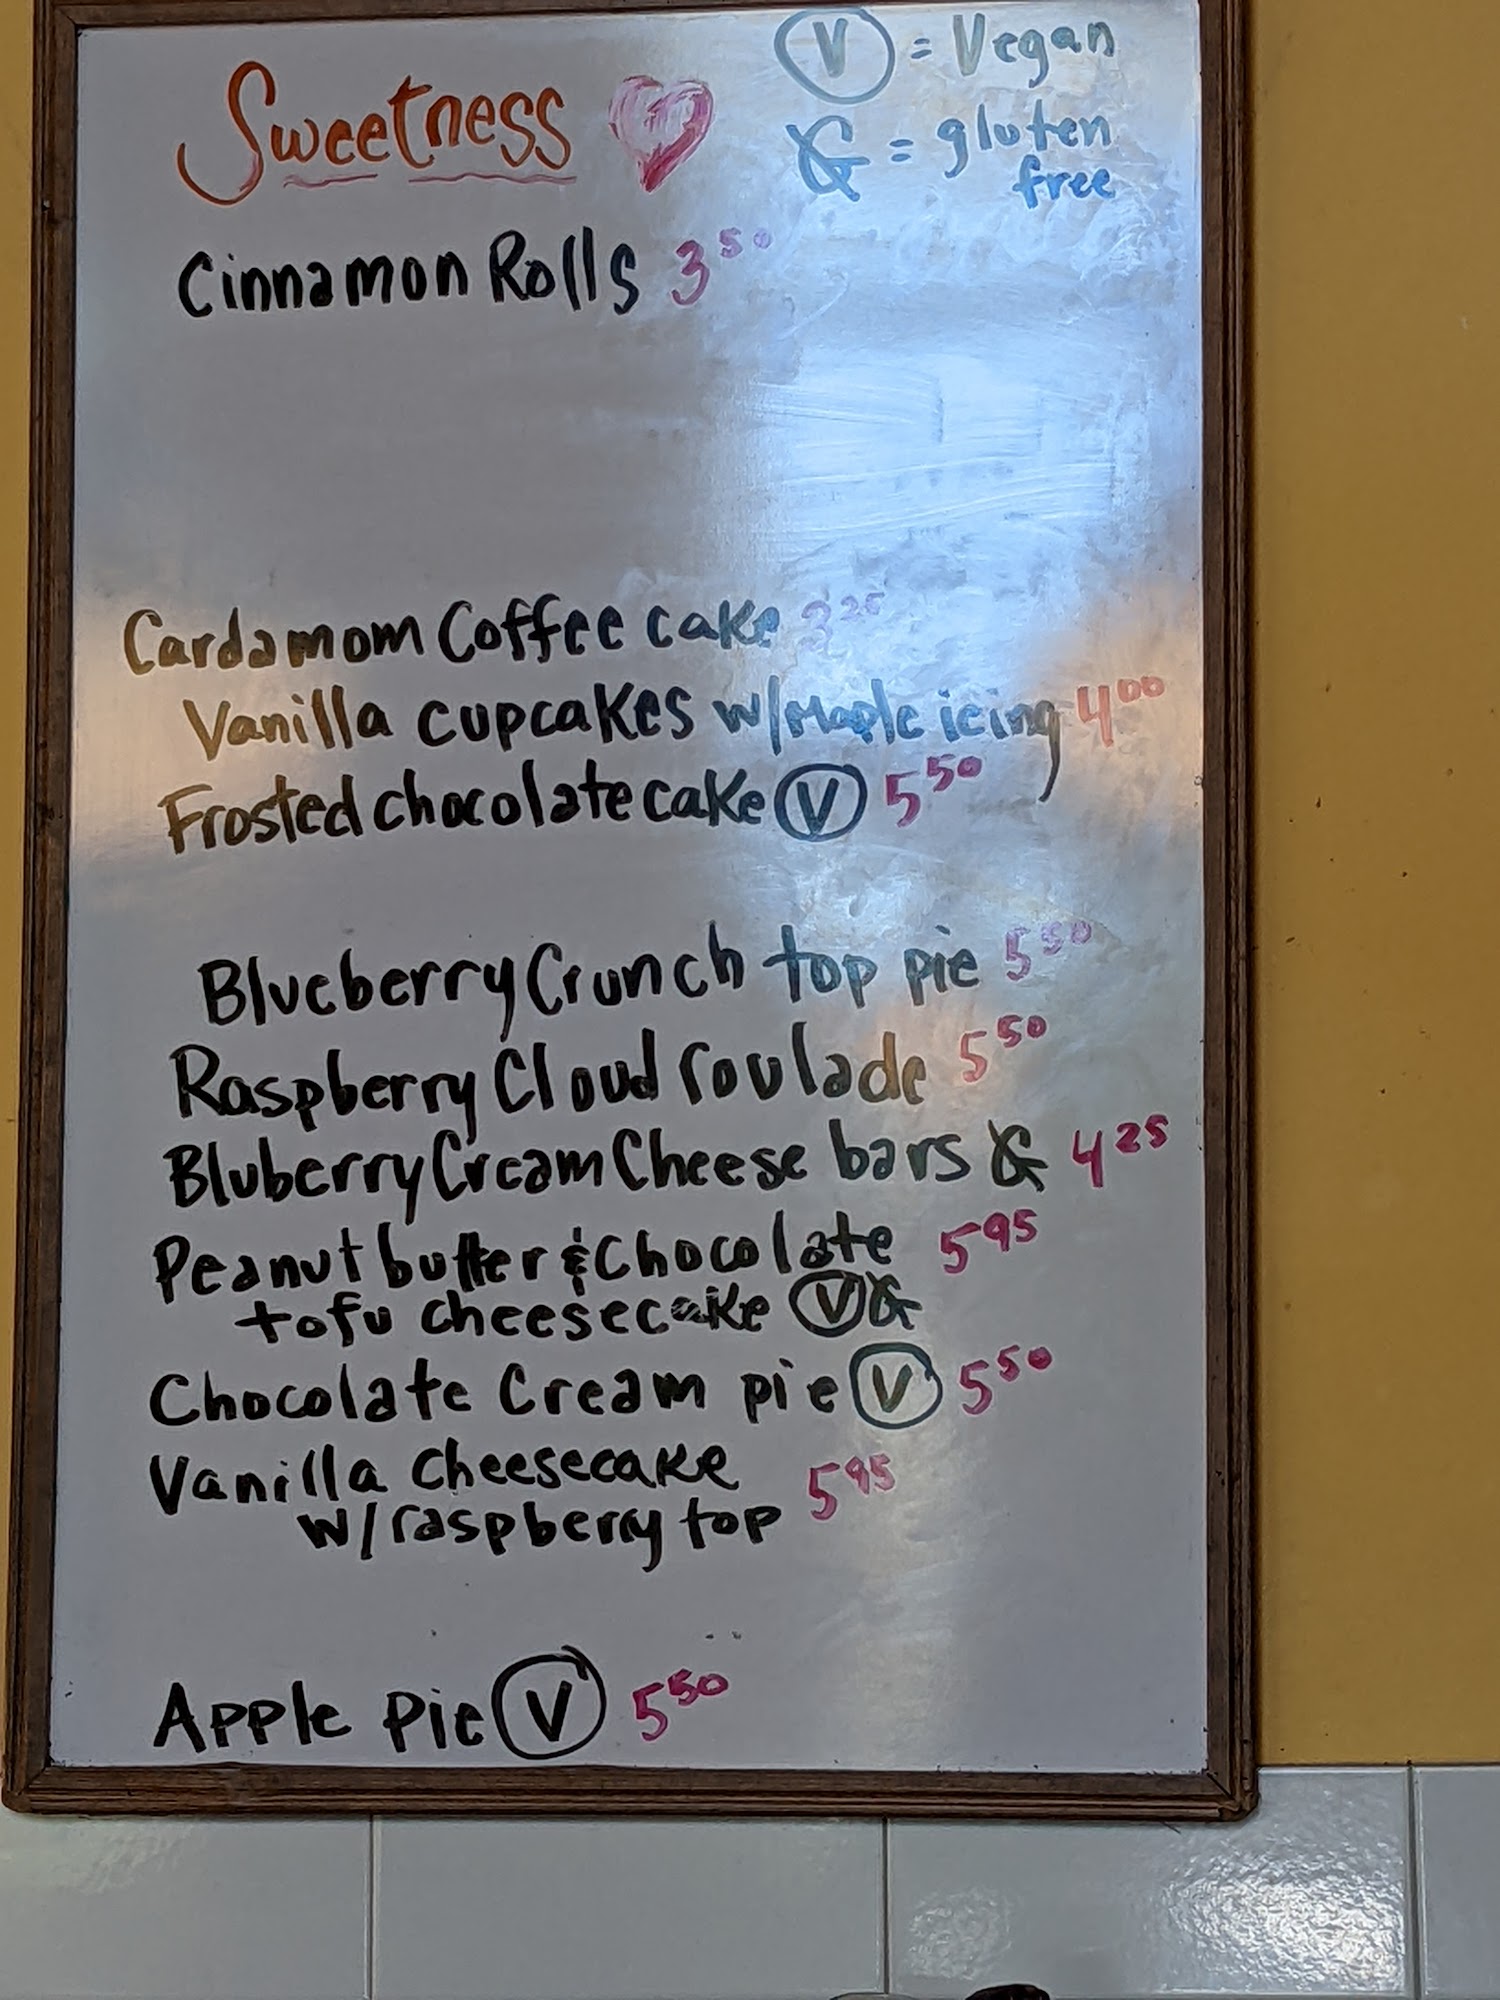 Sweetness
V = Vegan
G = gluten
free
Cinnamon Rolls 3 50
Cardamom Coffee cake 3 25
Vanilla cupcakes w/Maple icing 4 00
Frosted chocolate cake V 5 50
Blueberry Crunch top pie 5 50
Raspberry Cloud roulade 5 50
Bluberry Cream Cheese bars G 4 25
Peanut butter & Chocolate 5 95
tofu cheesecake V G
Chocolate Cream pie V 5 50
Vanilla Cheesecake 5 95
w/raspberry top
Apple Pie V 5 50